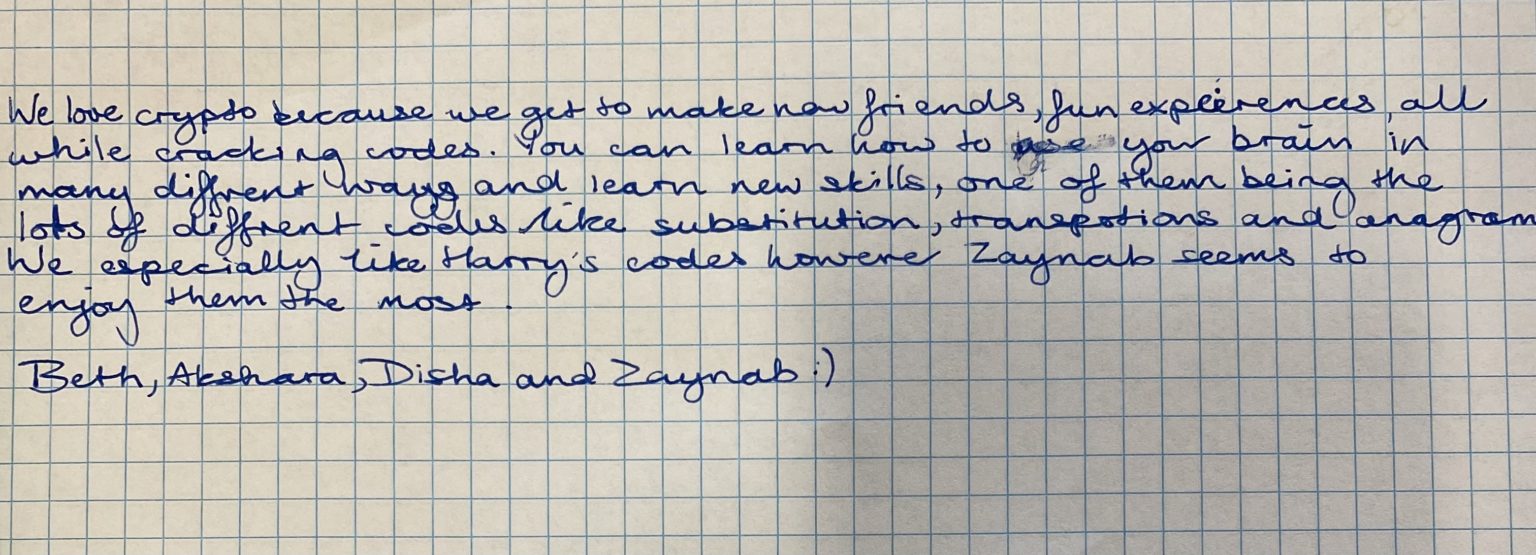 We love crypto because we get to make new friends, fun expeerences, all
while cracking codes. You can learn how to use your brain in
many diffrent ways and learn new skills, one of them being the
lots of diffrent codes like substitution, transpotions and anagram
We especially like Harry's codes howerer Zaynab seems to
enjoy them the most.
Beth, Akshara, Disha and Zaynab :)